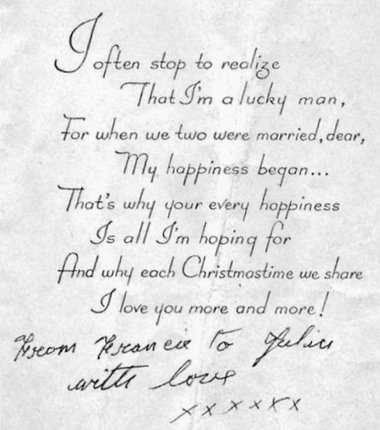 I often stop to realize
That I'm a lucky man,
For when we two were married, dear,
My happiness began...
That's why your every happiness
Is all I'm hoping for
And why each Christmastime we share
I love you more and more!
From Francie to Julia
with love
xxxxxx